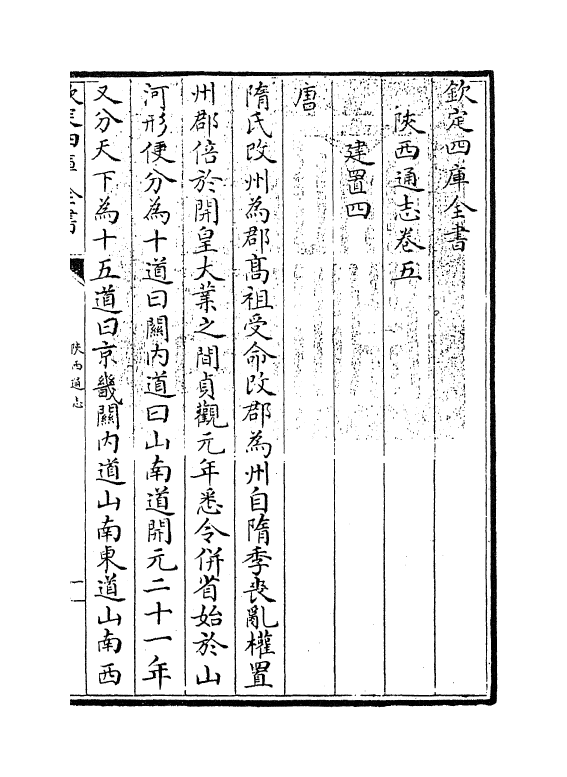 欽定四庫全書
陝西通志卷五
建置四
唐
隋氏改州為郡髙祖受命改郡為州自隋季喪亂權置
州郡倍於開皇大業之間貞觀元年悉令併省始於山
河形便分為十道曰關內道曰山南道開元二十一年
又分天下為十五道曰京畿關內道山南東道山南西
欽定四庫全書
陜西通志
一